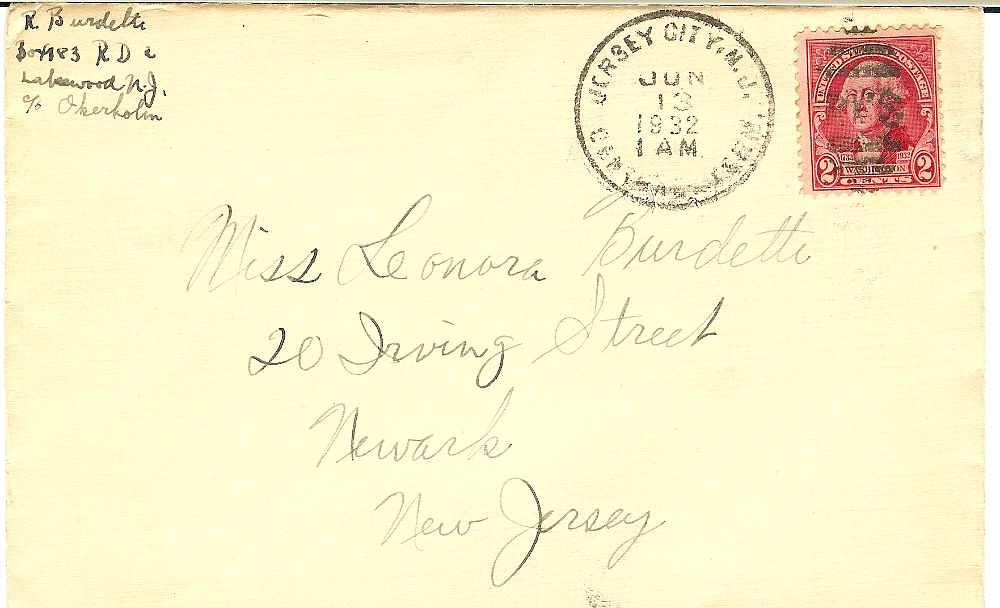 R Burdette
Box 183 R D 2
Lakewood N.J.
c/o Okerholm
JERSEY CITY, N.J.
JUN
13
1932
1 AM
UNITED STATES POSTAGE
1732 1932
2 WASHINGTON 2
CENTS
Miss Leonora Burdette
20 Irving Street
Newark
New Jersey